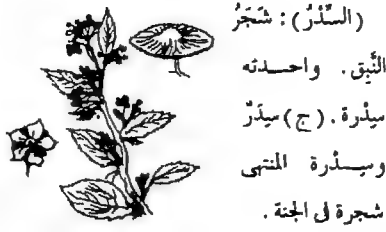 (السِّدْرُ): شَجَرُ
النَّبِق. واحــدته
سِدْرة. (ج) سِدَرٌ
وسِــدْرة المنتهى
شجرة فى الجنة.